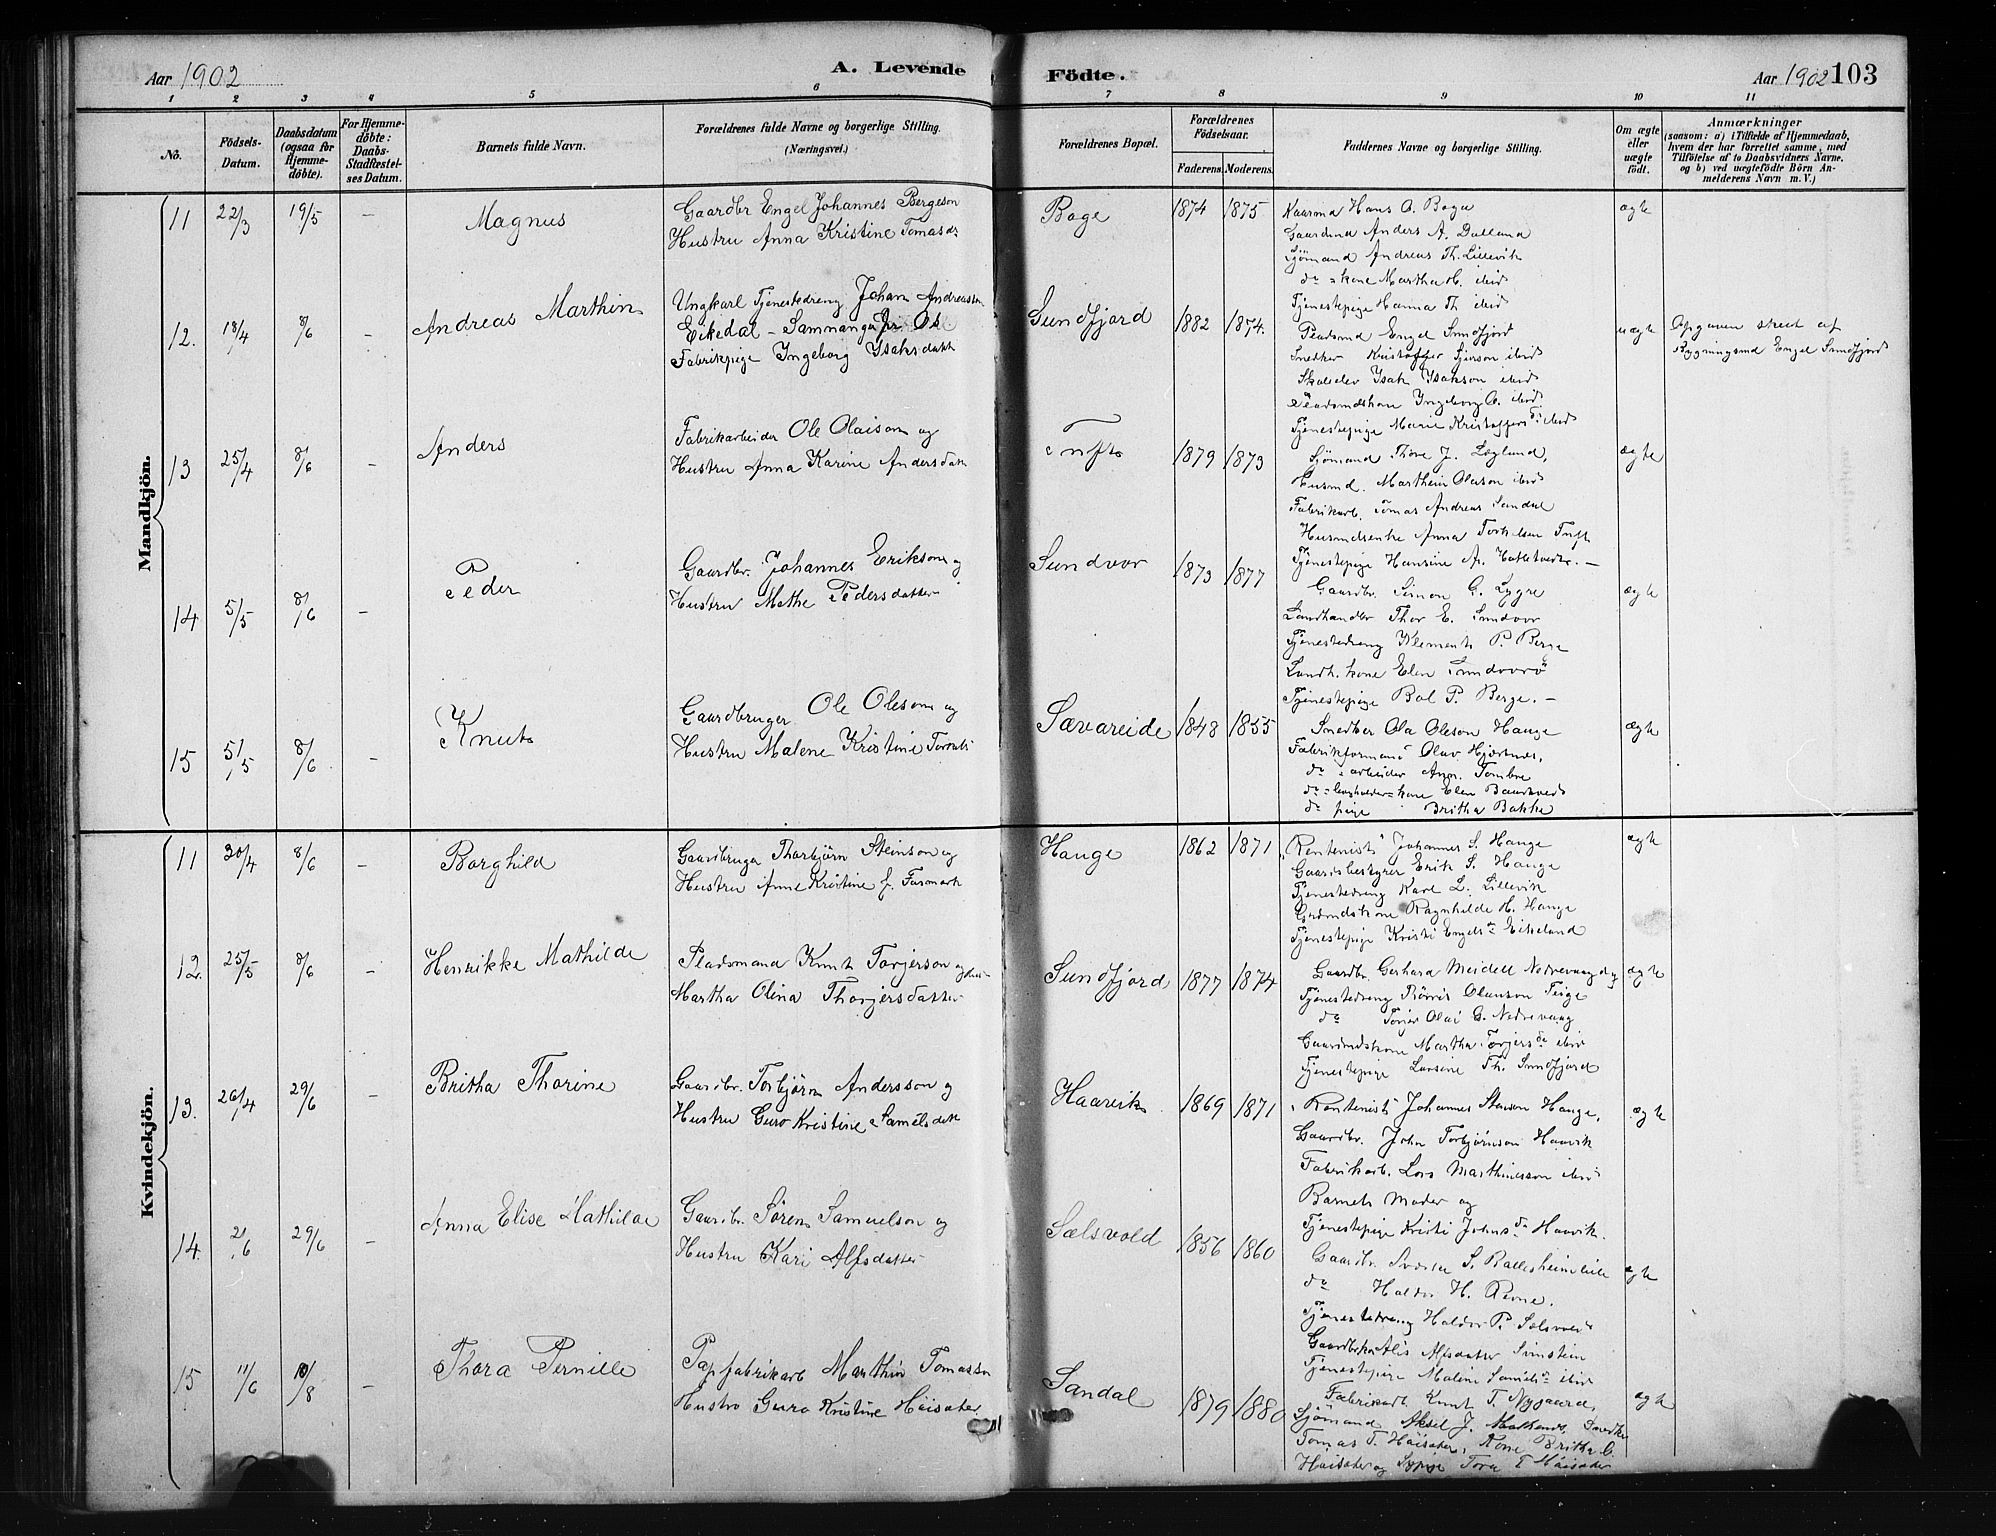 Aar 1902
A. Levende
Födte.
Aar 1902 103
1 2 3 4 5 6 7 8 9 10 11
No.
Födsels-
Datum.
Daabsdatum
(ogsaa for
Hjemme-
döbte).
For Hjemme-
döbte:
Daabs-
Stadfæstel-
ses Datum.
Barnets fulde Navn.
Forældrenes fulde Navne og borgerlige Stilling.
(Næringsvei.)
Forældrenes Bopæl.
Forældrenes
Födselsaar.
Faderens. Moderens.
Faddernes Navne og borgerlige Stilling.
Om ægte
eller
uægte
födt.
Anmærkninger
(saasom: a) i Tilfælde af Hjemmedaab,
hvem der har forrettet samme, med
Tilföielse af to Daabsvidners Navne,
og b) ved uægtefödte Börn An-
melderens Navn m. V.)
Mandkjön.
11 22/3 19/5 – Magnus
Gaardbr Engel Johannes Bergeson
Hustru Anna Kristine Tomasdr
Boge 1874 1875
Kaarma Hans O. Boge
Gaardmd Anders A. Dalland
Sjømand Andreas Th. Lillevik
do kone Martha H. ibid
Tjenestepige Hanna Th ibid
ægte
12. 18/4 8/6 – Andreas Marthin
Ungkarl Tjenestedreng Johan Andreasson
Eikedal – Samnanger Os
Fabrikpige Ingeborg Isaksdatt
Sundfjord 1882 1874.
Pladsmd Engel Sundfjord
Snedker Kristoffer ibid
Skoleelev Isak Isakson ibid
Pladsmdskone Ingeborg O. ibid
Tjenestepige Marie Kristoffersdr ibid
uægte
Opgaven skeet af
Bygningsmd Engel Sundfjord
13 25/4 8/6 – Anders
Fabrikarbeider Ole Olaison og
Hustru Anna Karine Andersdatt
Tuft 1879 1873
Sjømand Thore J. Legland,
Husmd. Marthein Olason ibid
Fabrikarb. Tomas Andreas Sandal
Husmdsenke Anna Torkelsen Tuft
Tjenestepige Hansine A. –
ægte
14 5/5 8/6 – Peder
Gaardbr. Johannes Erikson og
Hustru Mathe Pedersdatter
Sundvor 1873 1877
Gaardbr. Simon G. Lygre
Landhandler Thor E. Sundvor
Tjenestedreng Klement P. Berge
Landh. kone Elen Sundvor
Tjenestepige Bol P. Berge. –
ægte
15 5/5 8/6 – Knut
Gaardbruger Ole Oleson og
Hustru Malene Kristine
Sævareide 1848 1855
Snedker Ola Oleson Hauge
Fabrikformand Olav Hjertnes,
do arbeider Ann. Tombre
do kone Elen
do pige Britha Bakke
ægte
Kvindekjön.
11 30/4 8/6 – Borghild
Gaardbruger Thorbjørn Steinson og
Hustru Anne Kristine f. Fosmark
Hauge 1862 1871
"Rentenist" Johannes S. Hauge
Gaardsbestyrer Erik S. Hauge
Tjenestedreng Karl L. Lillevik
Grdmdskone Ragnhilde H. Hauge
Tjenestepige Kristi Engelsdr Eikeland
ægte
12. 25/5 8/6 – Henrikke Mathilde
Pladsmand Knut Torjerson og Hus-
Martha Olina Thorjersdatter
Sundfjord 1877 1874
Gaardbr. Gerhard Meidell Nedrevaag og
Tjenestedreng Olauson Teige
do Torjer Olai G. Nedrevaag
Gaardmdskone Martha Torjersdr ibid
Tjenestepige Lavine Th. Sundfjord
ægte
13. 26/4 29/6 – Britha Thorine
Gaardbr. Torbjørn Andersson og
Hustru Guro Kristine Samelsdatt
Haavik 1869 1871
"Rentenist" Johannes Stenson Hauge,
Gaardbr. John Torbjørnson Haavik
Fabrikarb. Lars Marthinesson ibid
Barnets Moder og
Tjenestepige Kristi Johnsdr Haavik.
ægte
14. 2/6 29/6 – Anna Elise Mathilde
Gaardbr. Søren Samuelson og
Hustru Kari Alfsdatter
Sælsvold 1856 1860
Gaardbr. S. Ballesheimlien
do Haldor H. Revne.
Tjenestedreng Haldor P. Sælsvold
Alfsdatter
Tjenestepige Malene ibid
ægte
15 11/6 10/8 – Thora Pernille
Papfabrikarb Marthin Tomasson
Hustro Guro Kristine Höisæter
Sandal 1879 1880
Fabrikarb Knut T. Nygaard,
Sjömand Aksel J. Snedker
Tomas T. Höisæter, Kone Britha G.
Höisæter og Tora T Höisæter
ægte